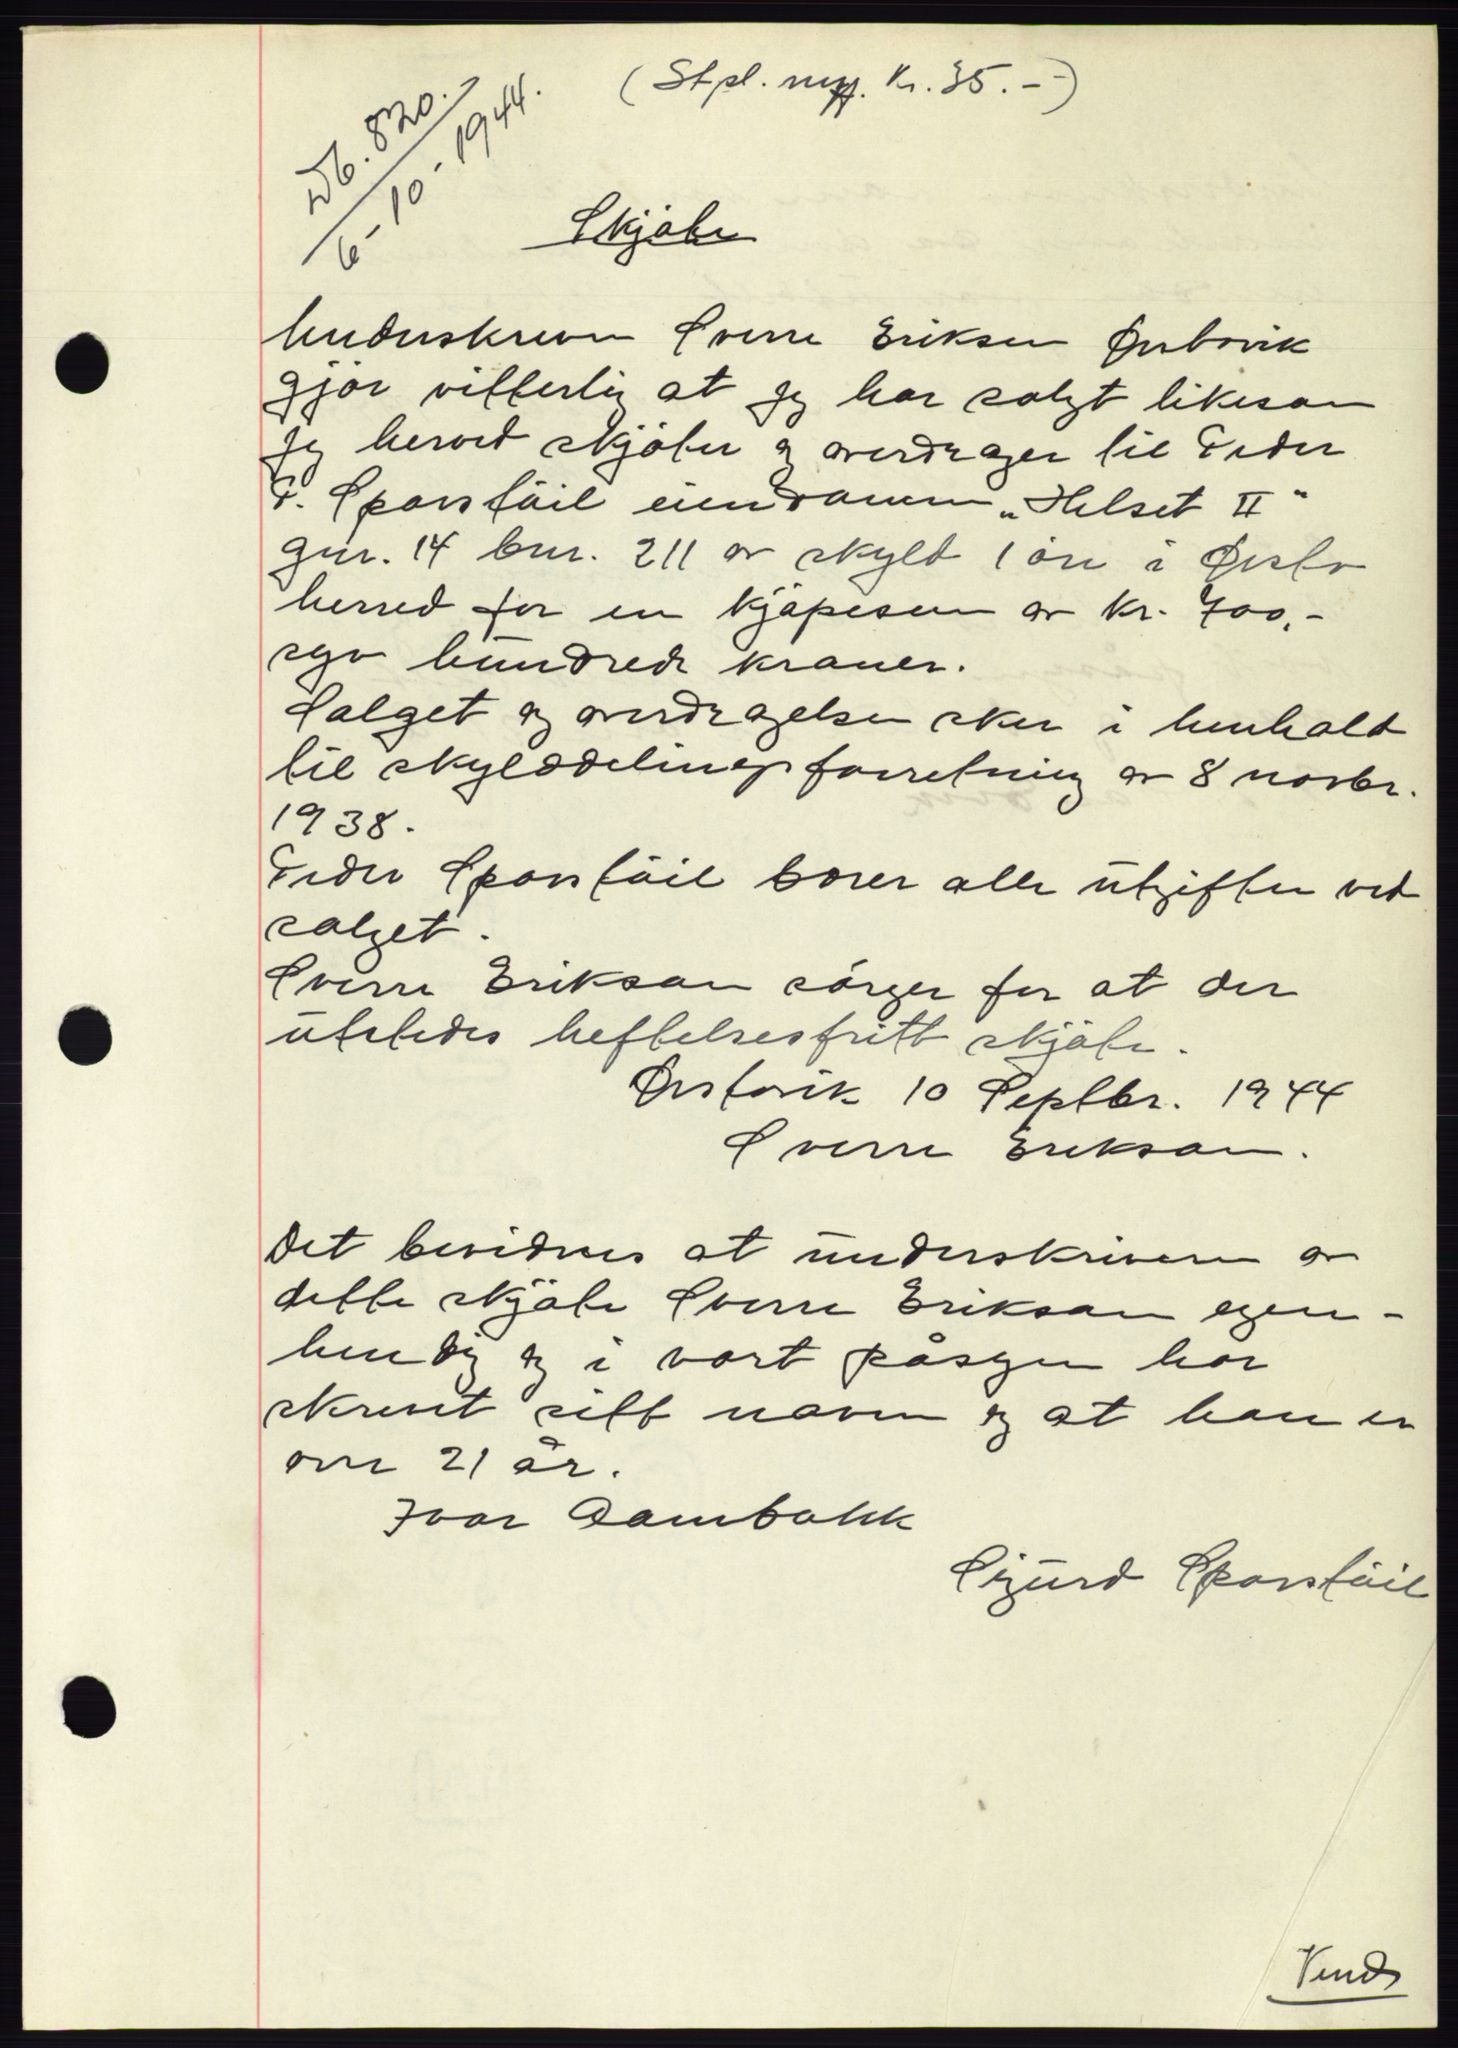 (Stpl. mrk. Kr. 35.-)
Db. 820.
6-10-1944.
Skjøte
Underskreven Sverre Eriksen Ørstavik
gjør vitterlig at jeg har solgt likesom
jeg herved skjøter og overdrager til Peder
P. Sporstøil eiendommen "Helset II"
gnr. 14 bnr. 211 av skyld 1 øre i Ørsta
herred for en kjøpesum av kr. 700,-
syv hundrede kroner.
Salget og overdragelsen sker i henhold
til skylddelingsforretning av 8 novbr.
1938.
Peder Sporstøil bærer alle utgifter ved
salget.
Sverre Erikson sørger for at der
utstedes heftelsesfritt skjøte.
Ørstavik 10 Septbr. 1944
Sverre Erikson.
Det bevidnes at underskriveren av
dette skjøte Sverre Erikson egen-
hendig og i vort påsyn har
skrevet sitt navn og at han er
over 21 år.
Ivar Aambakk
Sigurd Sporstøil
Vend